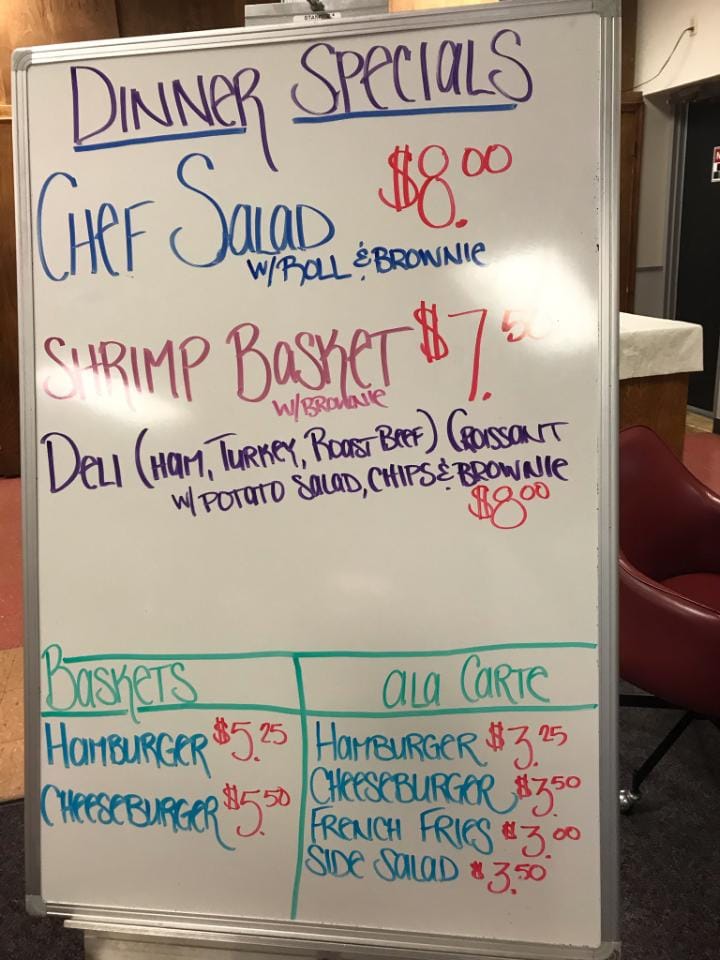 DINNER SPECIALS
CHEF SALAD $8.00
W/ROLL & BROWNIE
SHRIMP BASKET $7.50
W/BROWNIE
DELI (HAM, TURKEY, ROAST BEEF) CROISSANT
W/ POTATO SALAD, CHIPS & BROWNIE
$8.00
BASKETS
HAMBURGER $5.25
CHEESEBURGER $5.50
ALA CARTE
HAMBURGER $3.25
CHEESEBURGER $3.50
FRENCH FRIES $3.00
SIDE SALAD $3.50